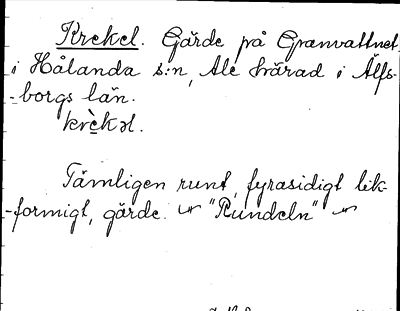 Krekel. Gärde på Granvattnet
i Hålanda s:n, Ale härad i Älfs-
-borgs län.
krèkəl.
Tämligen runt, fyrasidigt lik-
-formigt, gärde. "Rundeln"